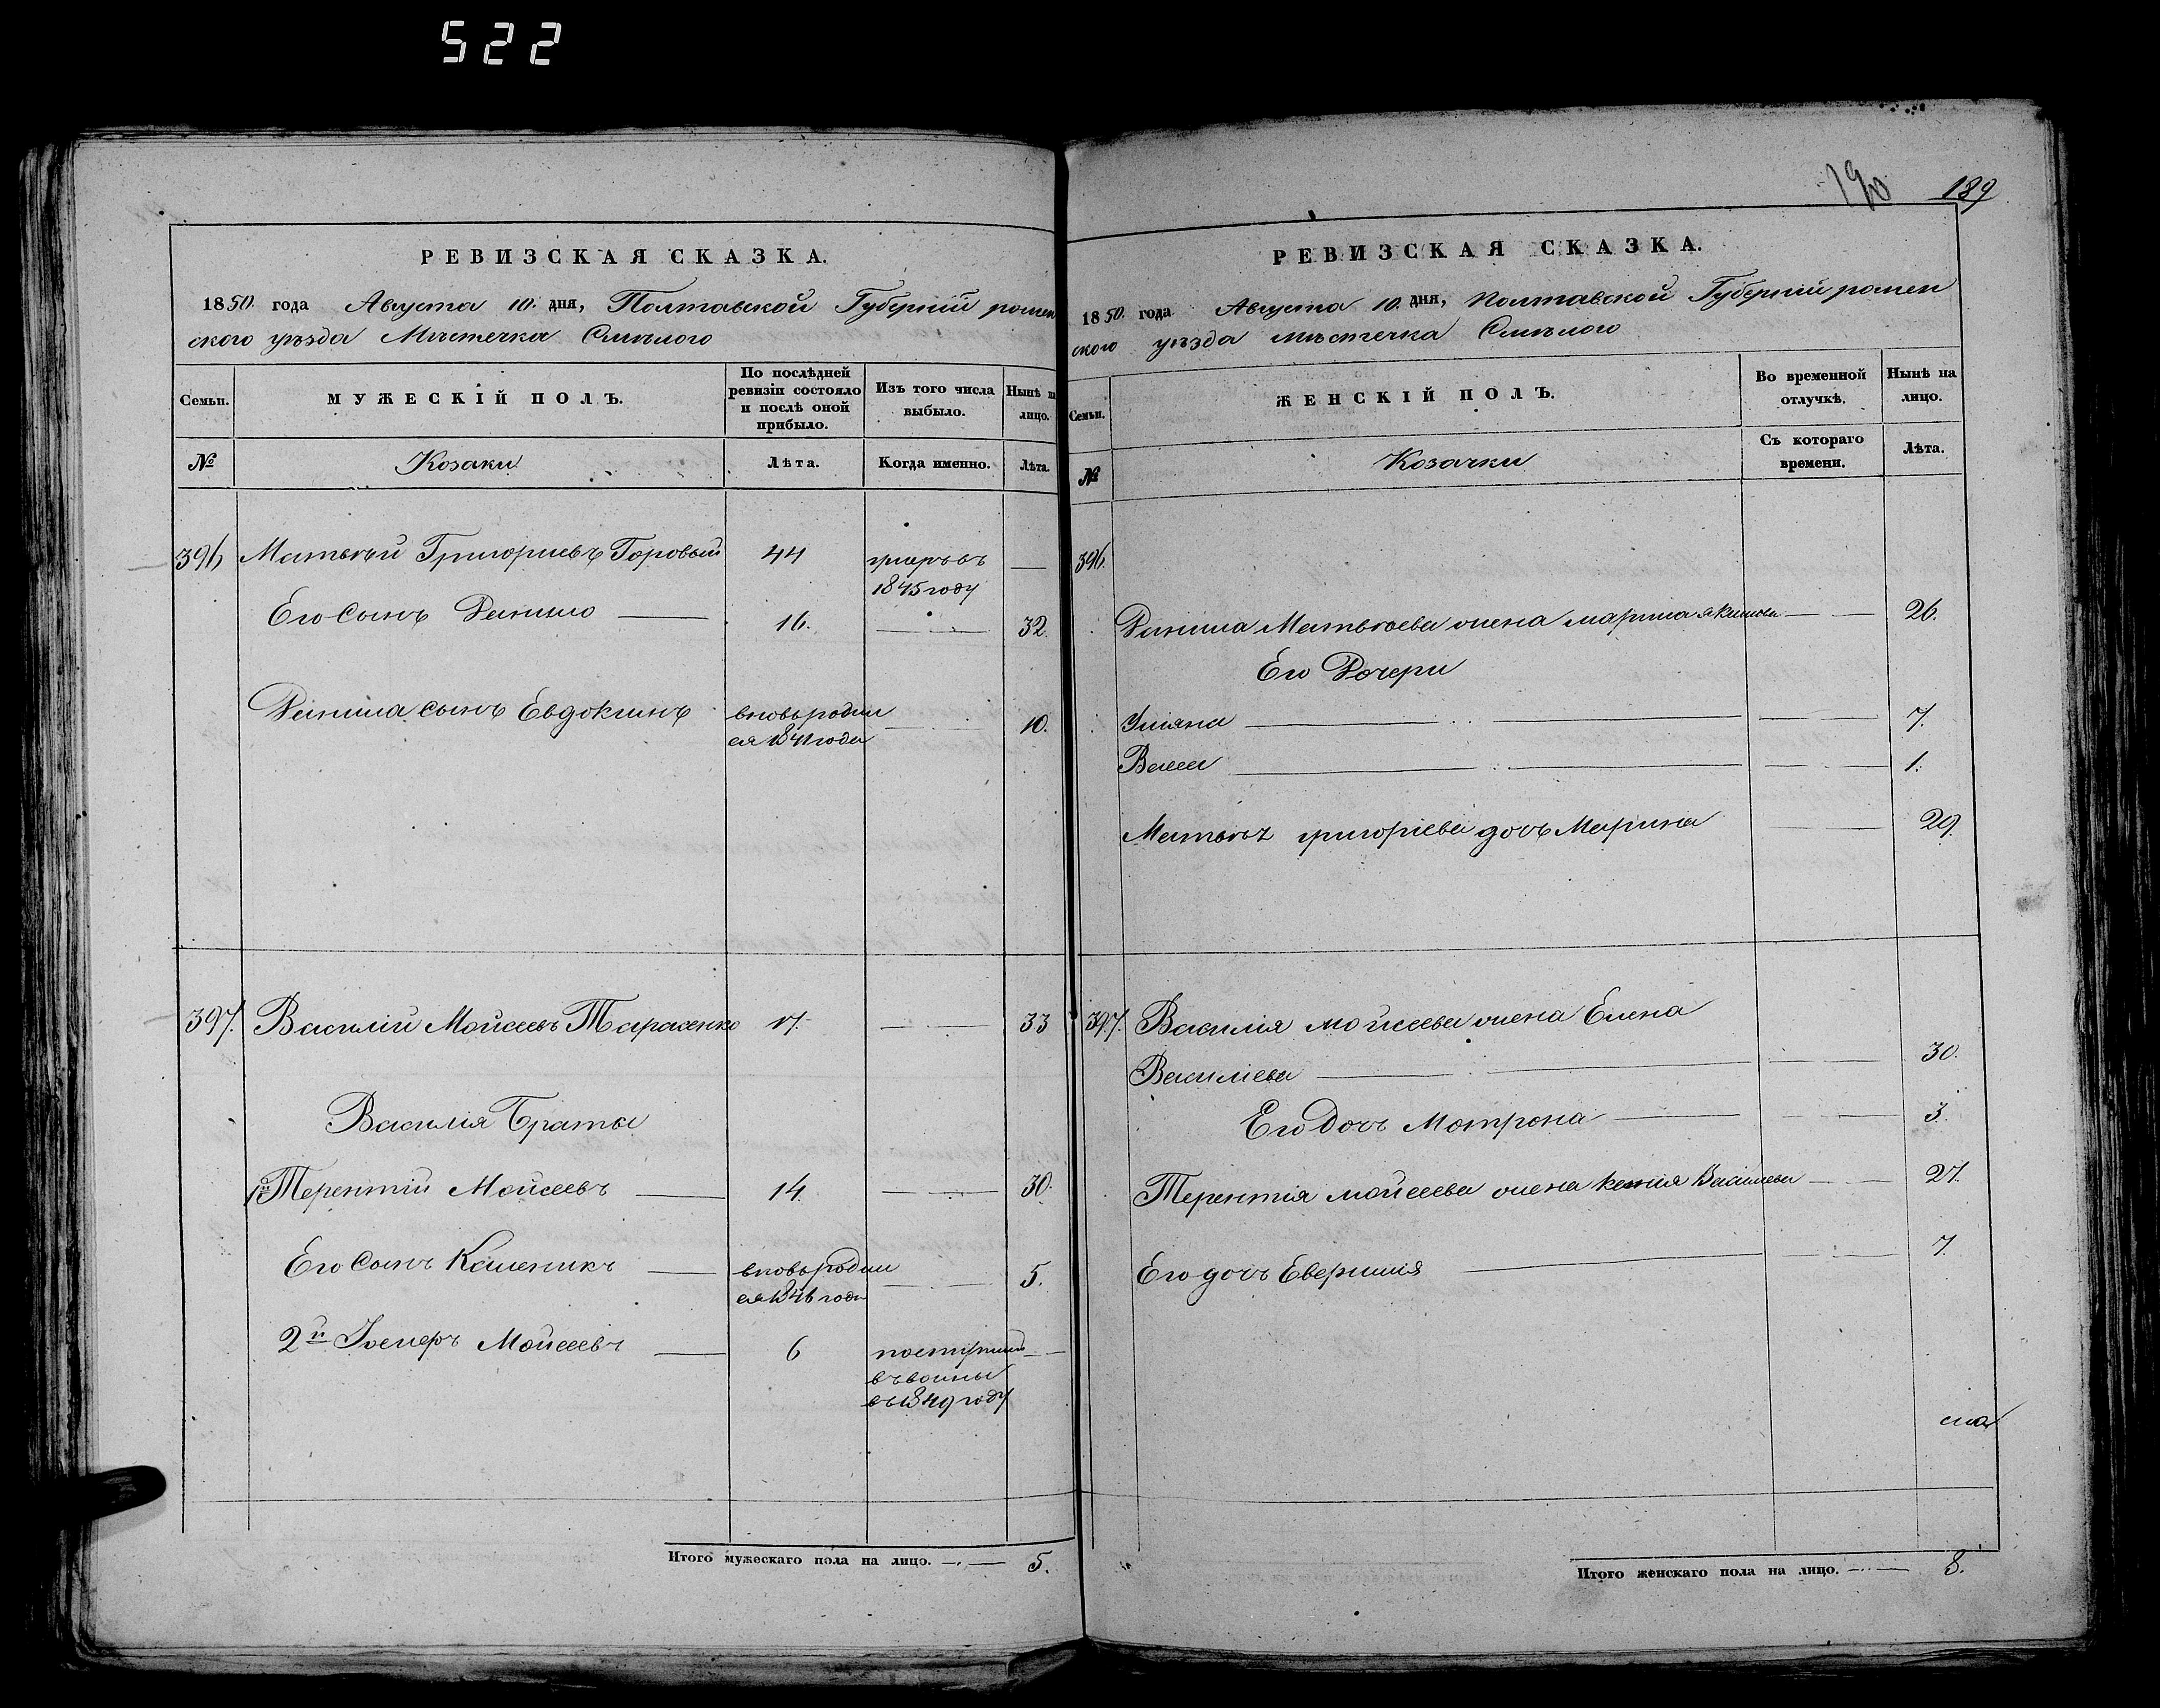 522
РЕВИЗСКАЯ СКАЗКА.
1850 года Августа 10. дня, Полтавской Губерніи ромен
ского уѣзда Мѣстечка Смѣлого
Семьи.
МУЖЕСКІЙ ПОЛЪ.
По послѣдней ревизіи состояло и послѣ оной прибыло.
Изъ того числа выбыло.
Нынѣ на лицо.
№
Козаки
Лѣта.
Когда именно.
Лѣта.
396 Матвѣй Григориевъ Горовый 44 умеръ въ —
1845 году
Его Сынъ Данило — 16. — 32.
Данила сынъ Евдокимъ вновь родил — 10.
ся 1841 года
397. Василій Мойсеевъ Тарасенко 17. — 33
Василія Браты
1й Терентій Мойсеевъ — 14. — 30.
Его Сынъ Каленикъ — вновь родил — 5.
ся 1846 года
2й Мойсеевъ — 6 —
въ 1849 году
Итого мужескаго пола на лицо. — 5.
190 189
РЕВИЗСКАЯ СКАЗКА.
1850 года Августа 10. дня, Полтавской Губерніи ромен
ского уѣзда мѣстечка Смѣлого
Семьи.
ЖЕНСКІЙ ПОЛЪ.
Во временной отлучкѣ.
Нынѣ на лицо.
№
Козачки
Съ котораго времени.
Лѣта.
396.
Данила Матвѣева жена Марина Якимова — 26.
Его Дочери
Уліяна — 7.
Васса — 1.
Матвѣя григоріева дочь Марина — 29.
397. Василія мойсеева жена Елена
Василіева — 30.
Его Дочь Мотрона — 3.
Терентія мойсеева жена Василиева — 27.
Его дочь — 7.
Итого женскаго пола на лицо. — 8.